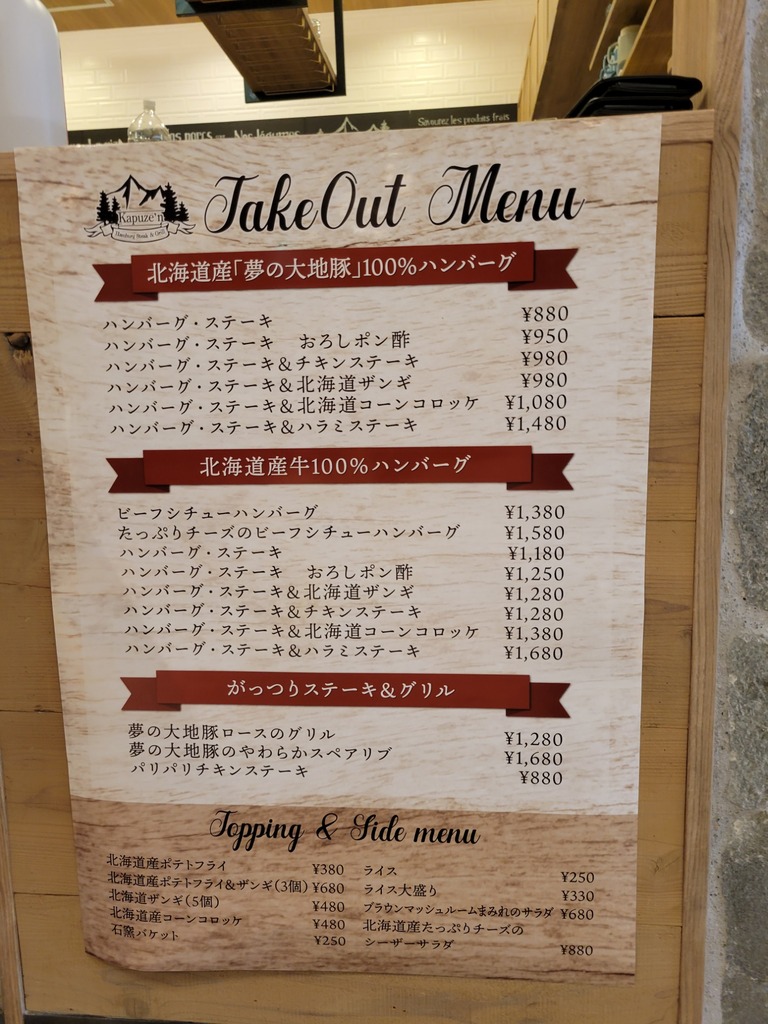 Savourez les produits frais
nos porcs
Nos légumes
Kapuze'n
Hamburg Steak & Grill
TakeOut Menu
北海道産「夢の大地豚」100%ハンバーグ
ハンバーグ・ステーキ ¥880
ハンバーグ・ステーキ おろしポン酢 ¥950
ハンバーグ・ステーキ&チキンステーキ ¥980
ハンバーグ・ステーキ&北海道ザンギ ¥980
ハンバーグ・ステーキ&北海道コーンコロッケ ¥1,080
ハンバーグ・ステーキ&ハラミステーキ ¥1,480
北海道産牛100%ハンバーグ
ビーフシチューハンバーグ ¥1,380
たっぷりチーズのビーフシチューハンバーグ ¥1,580
ハンバーグ・ステーキ ¥1,180
ハンバーグ・ステーキ おろしポン酢 ¥1,250
ハンバーグ・ステーキ&北海道ザンギ ¥1,280
ハンバーグ・ステーキ&チキンステーキ ¥1,280
ハンバーグ・ステーキ&北海道コーンコロッケ ¥1,380
ハンバーグ・ステーキ&ハラミステーキ ¥1,680
がっつりステーキ&グリル
夢の大地豚ロースのグリル ¥1,280
夢の大地豚のやわらかスペアリブ ¥1,680
パリパリチキンステーキ ¥880
Topping & Side menu
北海道産ポテトフライ ¥380
北海道産ポテトフライ&ザンギ(3個) ¥680
北海道ザンギ(5個) ¥480
北海道産コーンコロッケ ¥480
石窯バケット ¥250
ライス ¥250
ライス大盛り ¥330
ブラウンマッシュルームまみれのサラダ ¥680
北海道産たっぷりチーズの
シーザーサラダ ¥880